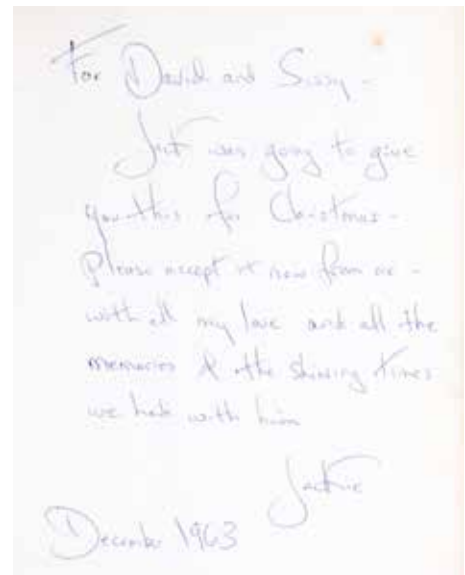 For David and Sissy -
Jack was going to give
you this for Christmas -
Please accept it now from me -
with all my love and all the
memories of the shining times
we had with him
Jackie
December 1963